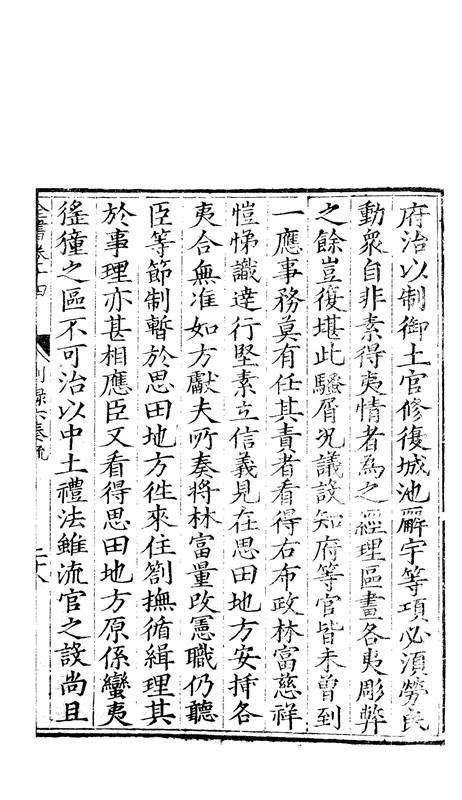 府治以制御土官修復城池廨宇等項必須勞民
動衆自非素得夷情者為之經理區畫各夷彫弊
之餘豈復堪此騷屑况議設知府等官皆未曾到
一應事務莫有任其責者看得右布政林富慈祥
愷悌識達行堅素立信義見在思田地方安揷各
夷合無准如方獻夫所奏將林富量改憲職仍聽
臣等節制暫於思田地方徃來住劄撫循緝理其
於事理亦甚相應臣又看得思田地方原係蠻夷
徭獞之區不可治以中土禮法雖流官之設尚且
全書卷十四 別録六奏疏 二十八